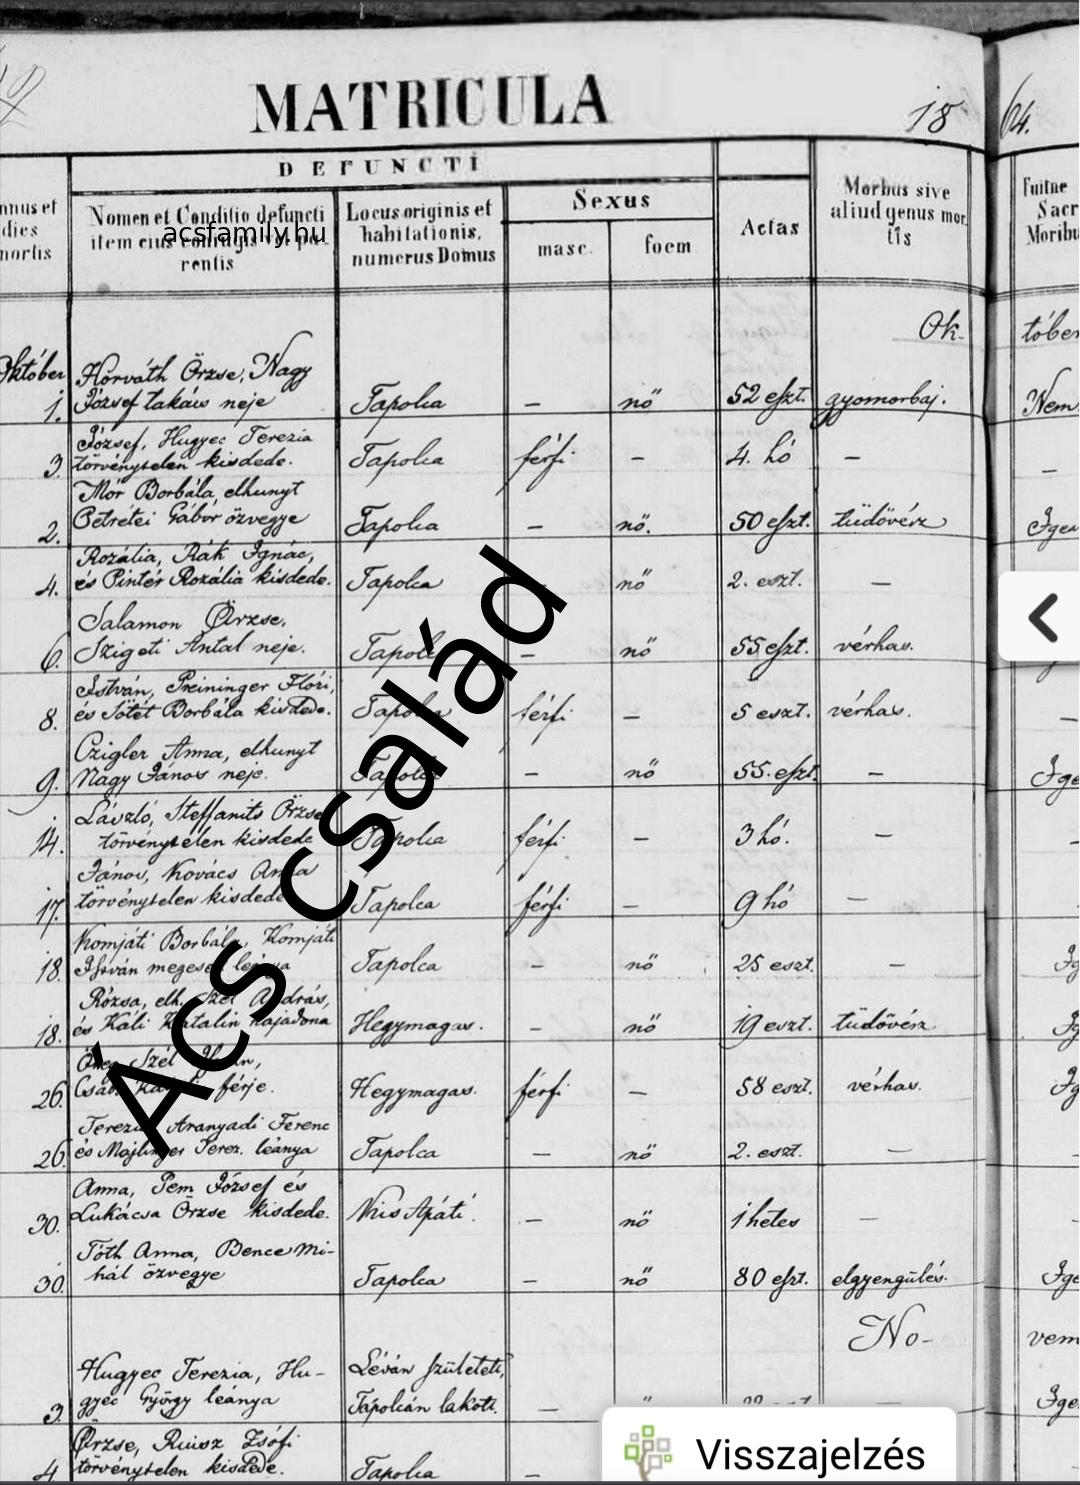 MATRICULA
18 64.
DEFUNCTI
nnus et
dies
mortis
Nomen et Conditio defuncti
item eius conjugis vel pa-
rentis
acsfamily.hu
Locus originis et
habitationis,
numerus Domus
Sexus
masc.
foem
Aetas
Morbus sive
aliud genus mor
tis
Fuitne
Sacr
Moribu
Ok- tóber
Október
Horváth Örzse, Nagy
1. József takács neje Tapolca – nő 52 eszt. gyomorbaj. Nem
József, Hugyec Terezia
3. törvénytelen kisdede. Tapolca férfi – 4. hó – –
Mór Borbála, elhunyt
2. Petrétei Gábor özvegye Tapolca – nő. 50 eszt. tüdővész Igen
Rozália, Rák Ignác,
4. és Pintér Rozália kisdede. Tapolca – nő 2. eszt. –
Salamon Örzse,
6. Szigeti Antal neje. Tapolca – nő 55 eszt. vérhas.
István, Preininger Flóri,
8. és Sötét Borbála kisdede. Tapolca férfi – 5 eszt. vérhas. –
Czigler Anna, elhunyt
9. Nagy János neje. Tapolca – nő 55. eszt. – Ige
László, Steffanits Örzse
14. törvénytelen kisdede Tapolca férfi – 3 hó. – –
János, Kovács Anna
17. törvénytelen kisdede Tapolca férfi – 9 hó –
Komjáti Borbála, Komjáti
18. István megeset leánya Tapolca – nő 25 eszt. – Ig
Rózsa, elh. Szél András,
18. és Káli Katalin hajadona Hegymagas. – nő 19 eszt. tüdővész Ig
Szél
26. férje. Hegymagas. férfi – 58 eszt. vérhas. Ig
Terezia Aranyadi Ferenc
26. és Majlinger Terez. leánya Tapolca – nő 2. eszt. – –
Anna, Pem József és
30. Lukácsa Örzse kisdede. Nris Apáti. – nő 1 hetes – –
Tóth Anna, Bence Mi-
30. hál özvegye Tapolca – nő 80 eszt. elgyengülés. Ige
No- vem
Hugyec Terezia, Hu- Léván születeti,
3. gyec György leánya Tapolcán lakott. – – Ige
Örzse, Ruisz Zsófi
4 törvénytelen kisdede. Tapolca –
Ács család
Visszajelzés